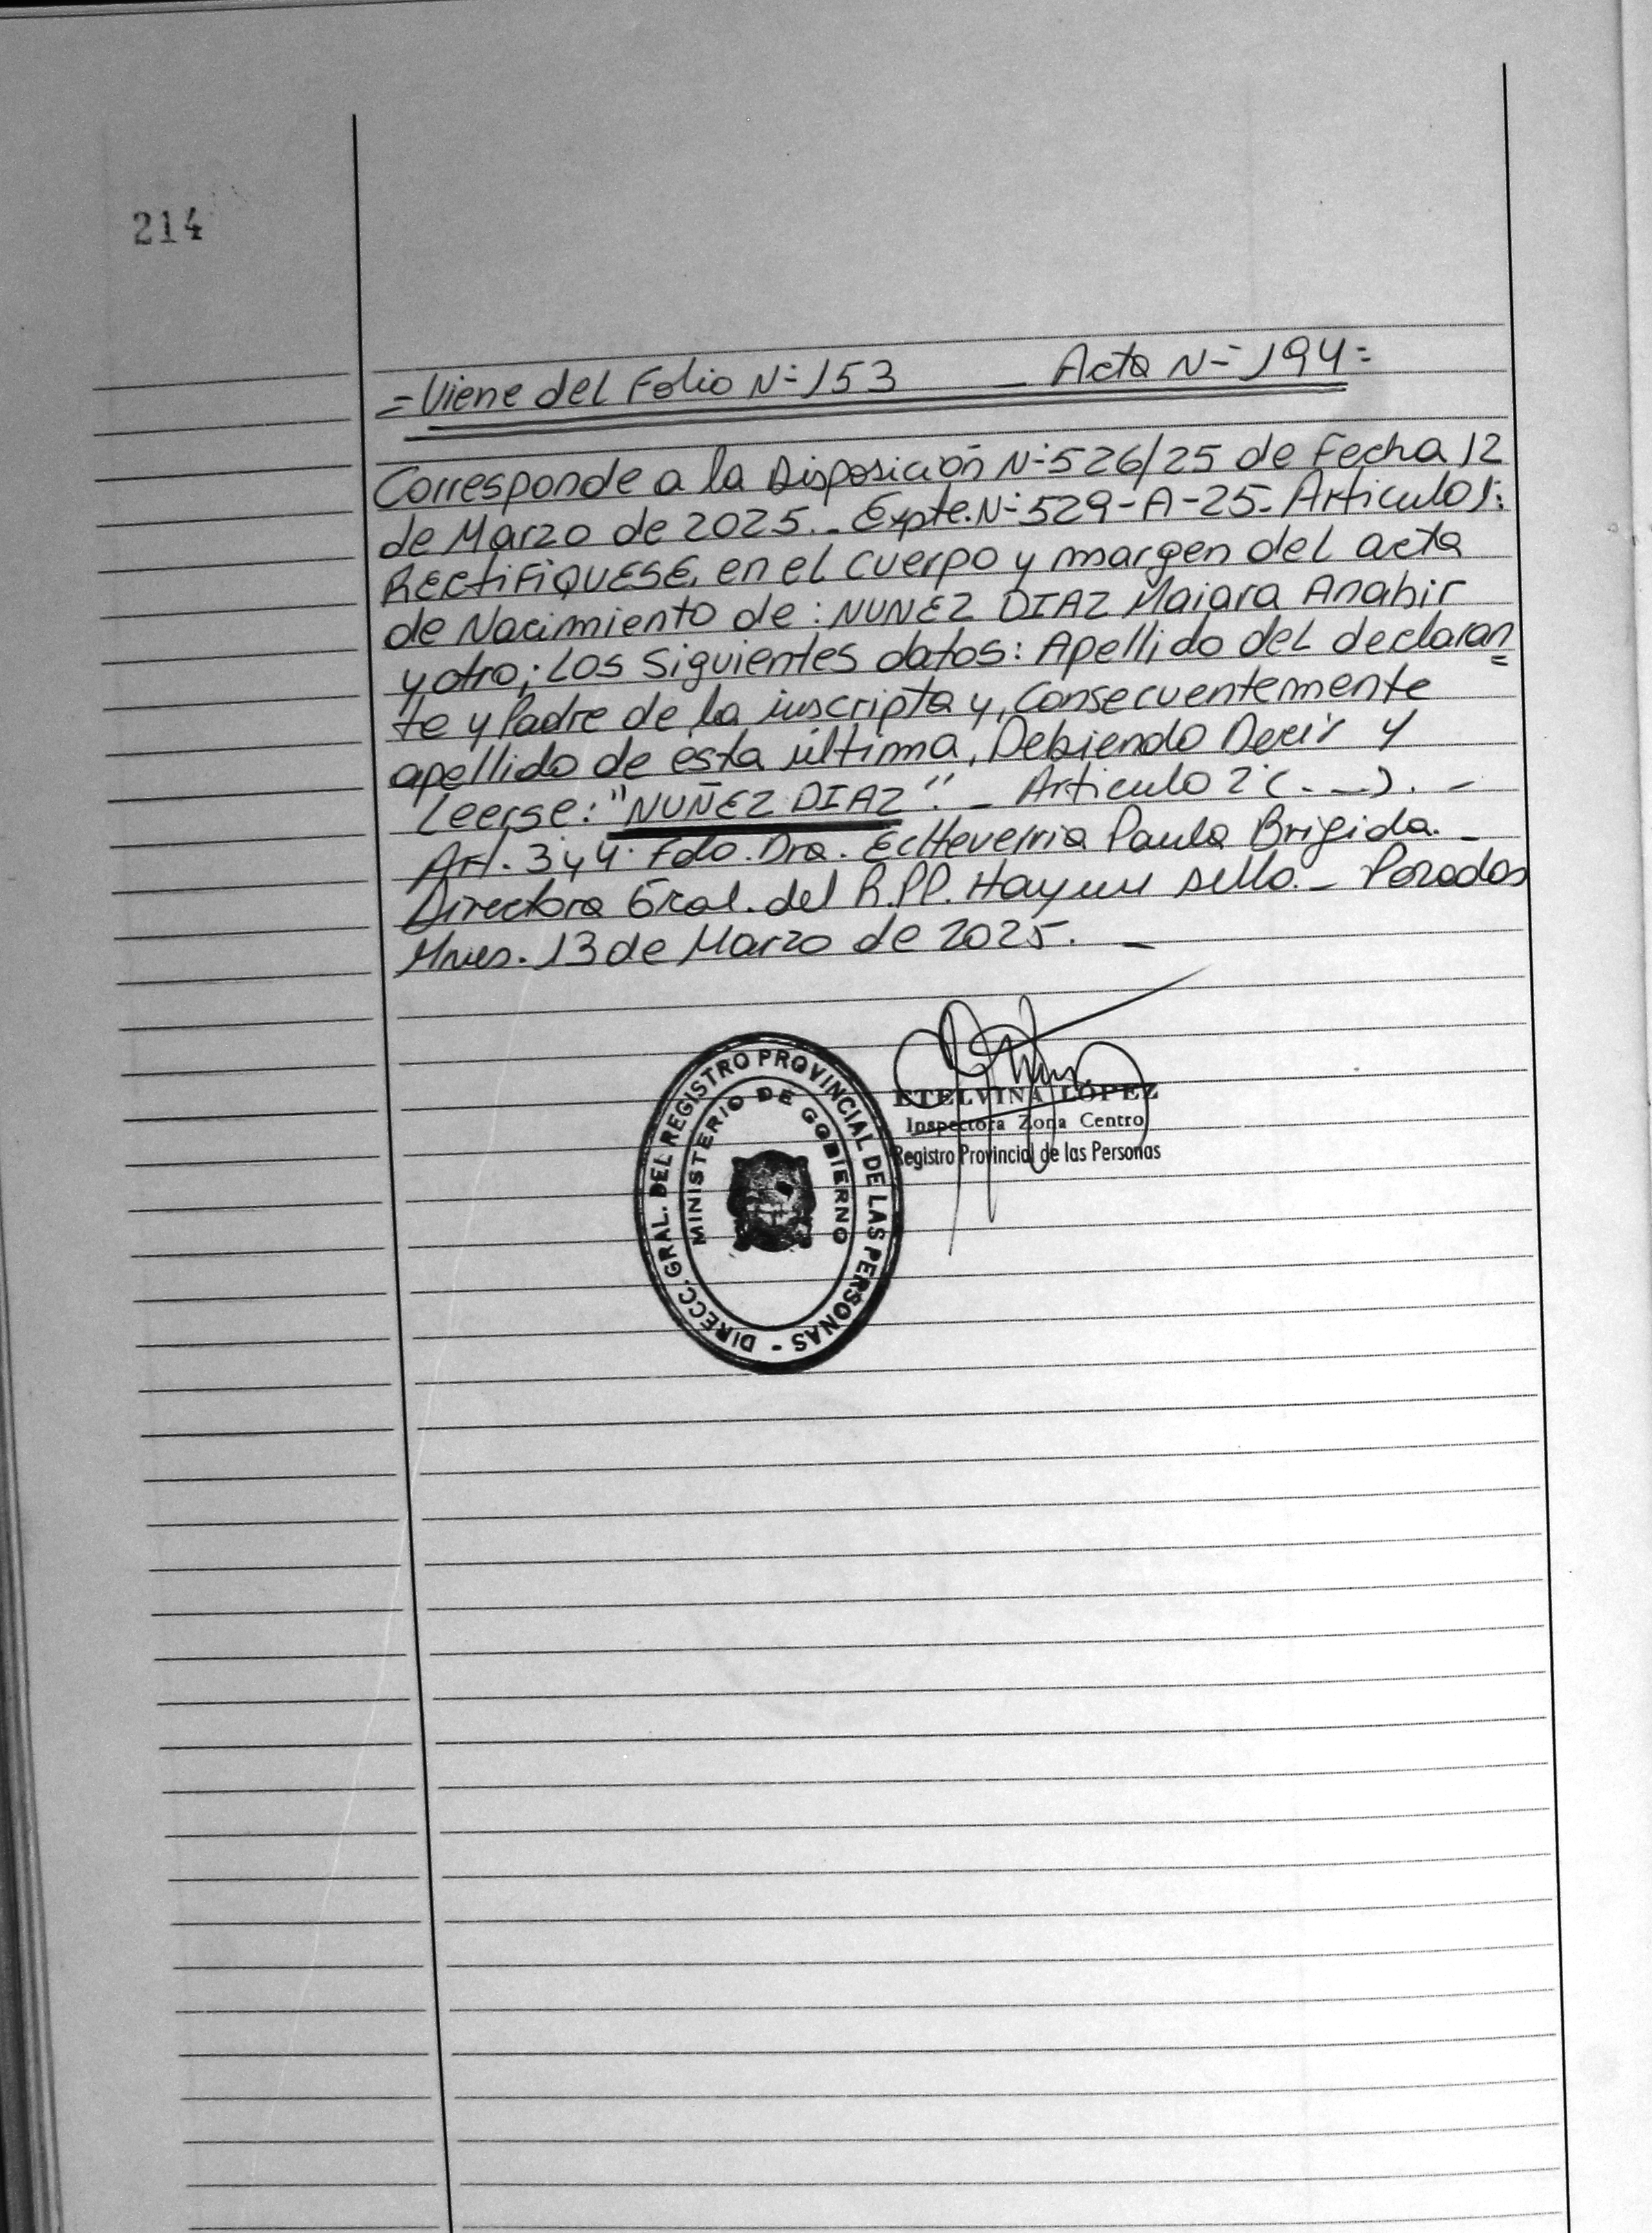 214
= Viene del Folio N° 153 _ Acta N° 194 =
Corresponde a la Disposición N° 526/25 de Fecha 12
de Marzo de 2025._ Expte. N° 529-A-25_ Articulo 1:
RECTIFIQUESE, en el cuerpo y margen del acta
de Nacimiento de: NUNEZ DIAZ Maiara Anahir
y otro; Los Siguientes datos: Apellido del declaran=
te y Padre de la inscripta y, Consecuentemente
apellido de esta última, Debiendo Decir y
Leerse: "NUÑEZ DIAZ". _ Articulo 2° (. _). _
Art. 3 y 4. Fdo. Dra. Echeverria Paula Brigida. _
Directora Gral. del R.PP. Hay un sello. _ Posadas
Mnes. 13 de Marzo de 2025. _
DIRECC. GRAL. DEL REGISTRO PROVINCIAL DE LAS PERSONAS -
MINISTERIO DE GOBIERNO
ETELVINA LÓPEZ
Inspectora Zona Centro
Registro Provincial de las Personas